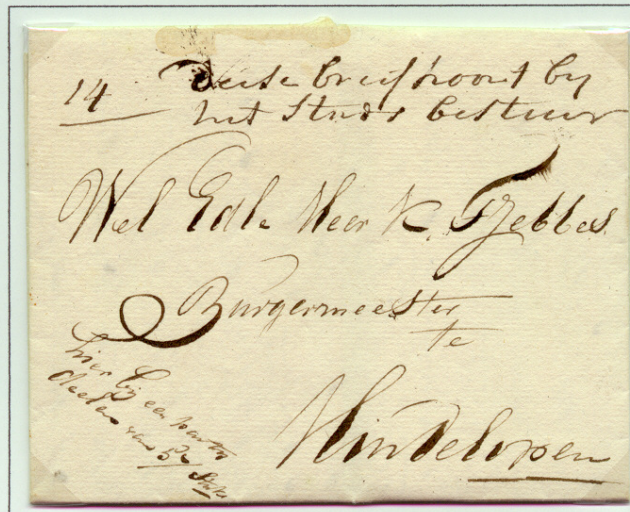 14 Deese breif hoort by
het Stads bestuur
Wel Edle Heer K. Tjebbes
Burgermeester
te
Hindelopen
hier bij een
van 52 Stuks